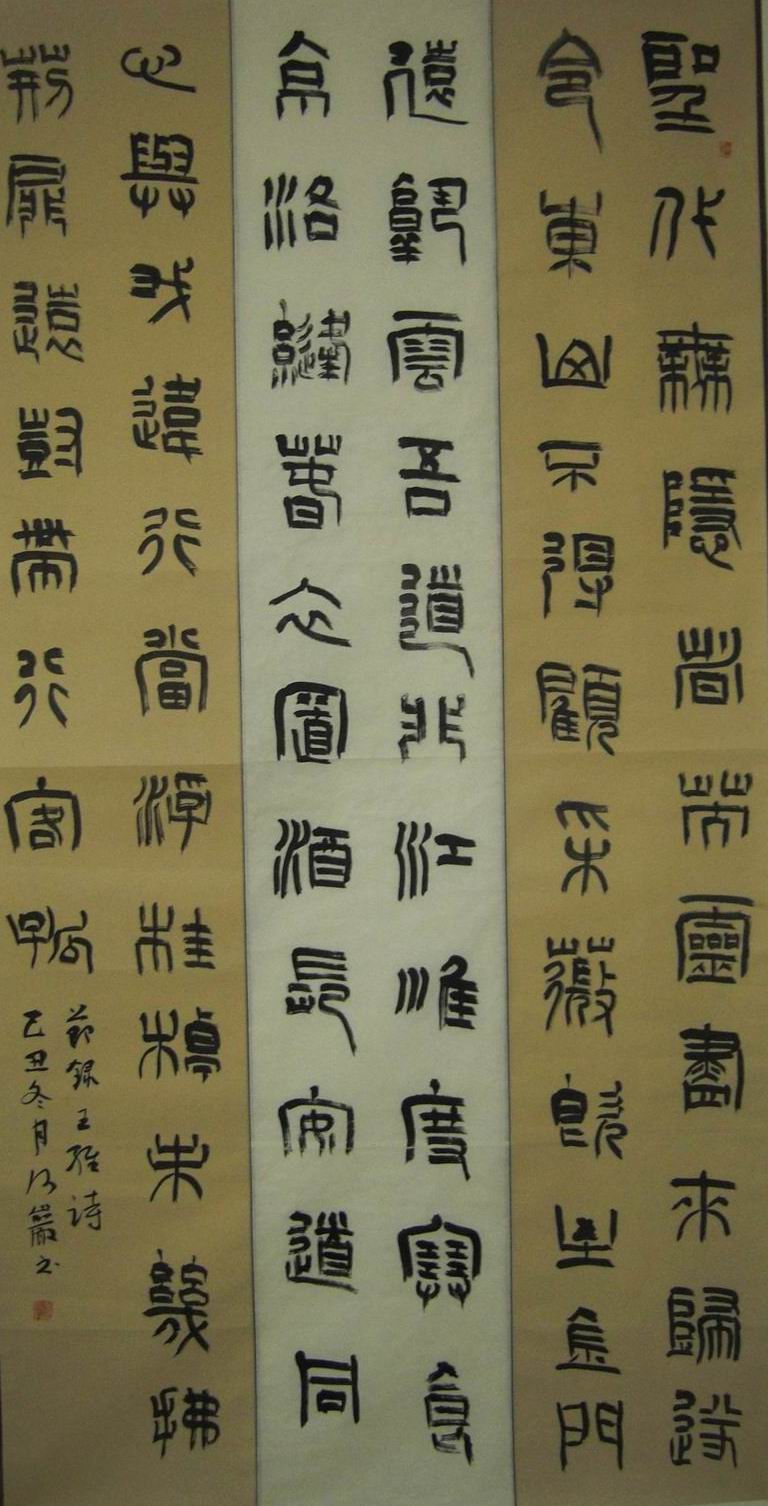 聖代無隱者英靈盡來歸遂
令東山不得顧采薇既至金門
遠孰雲吾道非江淮度寒食
京洛縫春衣置酒長安道同
心與我違行當浮桂棹未幾拂
荊扉遠樹帶行客孤
節錄王維詩
己丑冬月巖書